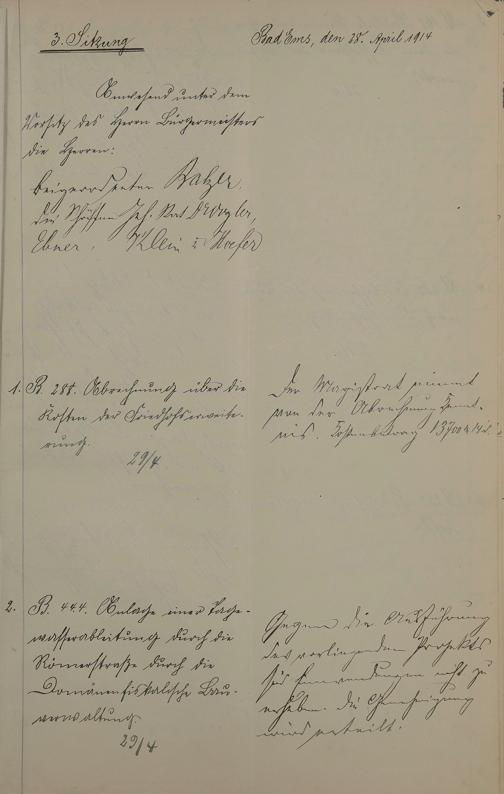 3. Sitzung
Bad Ems, den 28. April 1914
Anwesend unter dem
Vorsitz des Herrn Bürgermeisters
die Herren:
Beigeordneter Balzer,
die Schöffen Jos. Rat
Ebner, Klein u. Hoefer
1. B. 288. Abrechnung über die
Kosten der Friedhofserweite-
rung.
29/4
Der Magistrat nimmt
von der Abrechnung Kennt-
nis. Kostenbetrag 13700 M 14
2. B. 444. Anlage einer Tage-
wasserableitung durch die
Römerstraße durch die
Domänenfiskalische Bau-
verwaltung.
29/4
Gegen die Ausführung
des vorliegenden Projekts
sind Einwendungen nicht zu
erheben. Die Genehmigung
wird erteilt.